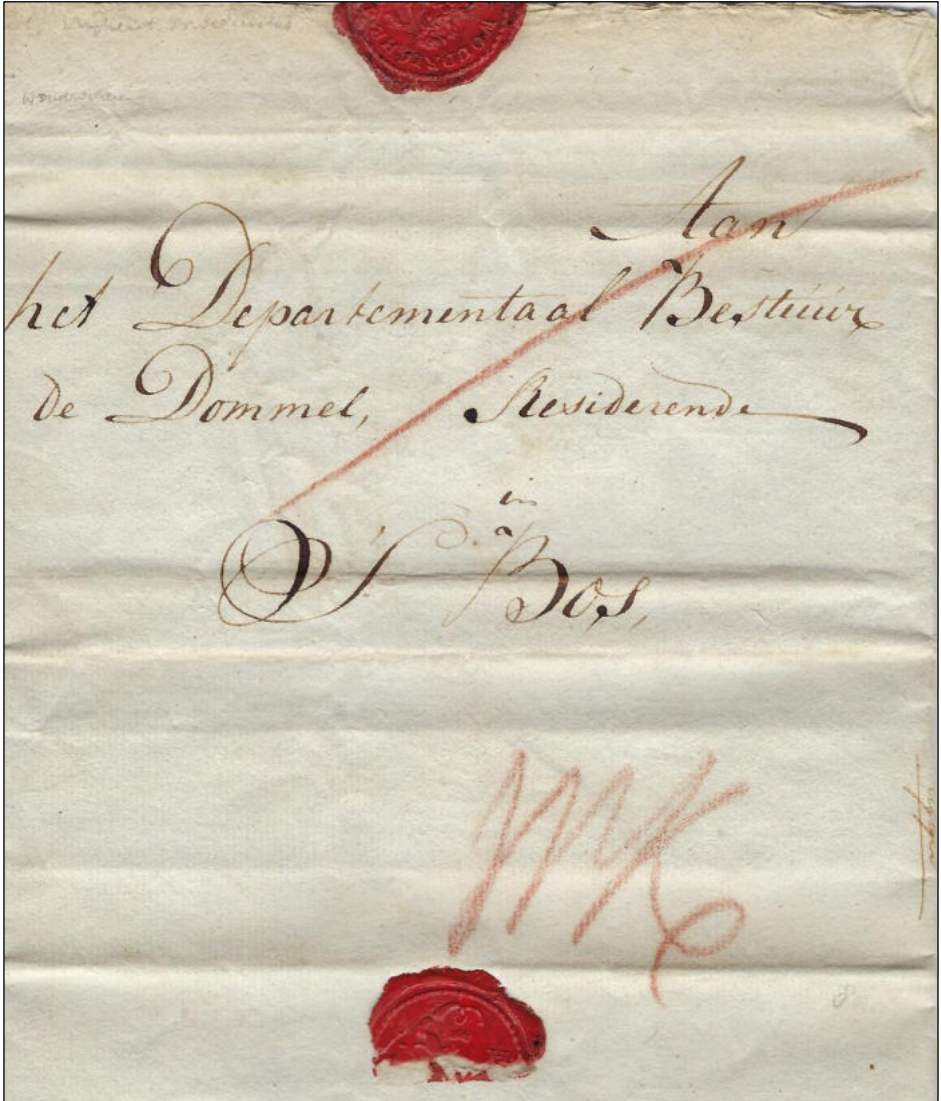 WOUDRICHE
Aan
het Departementaal Bestuur
de Dommel, Resideerende
in
S' Bos,